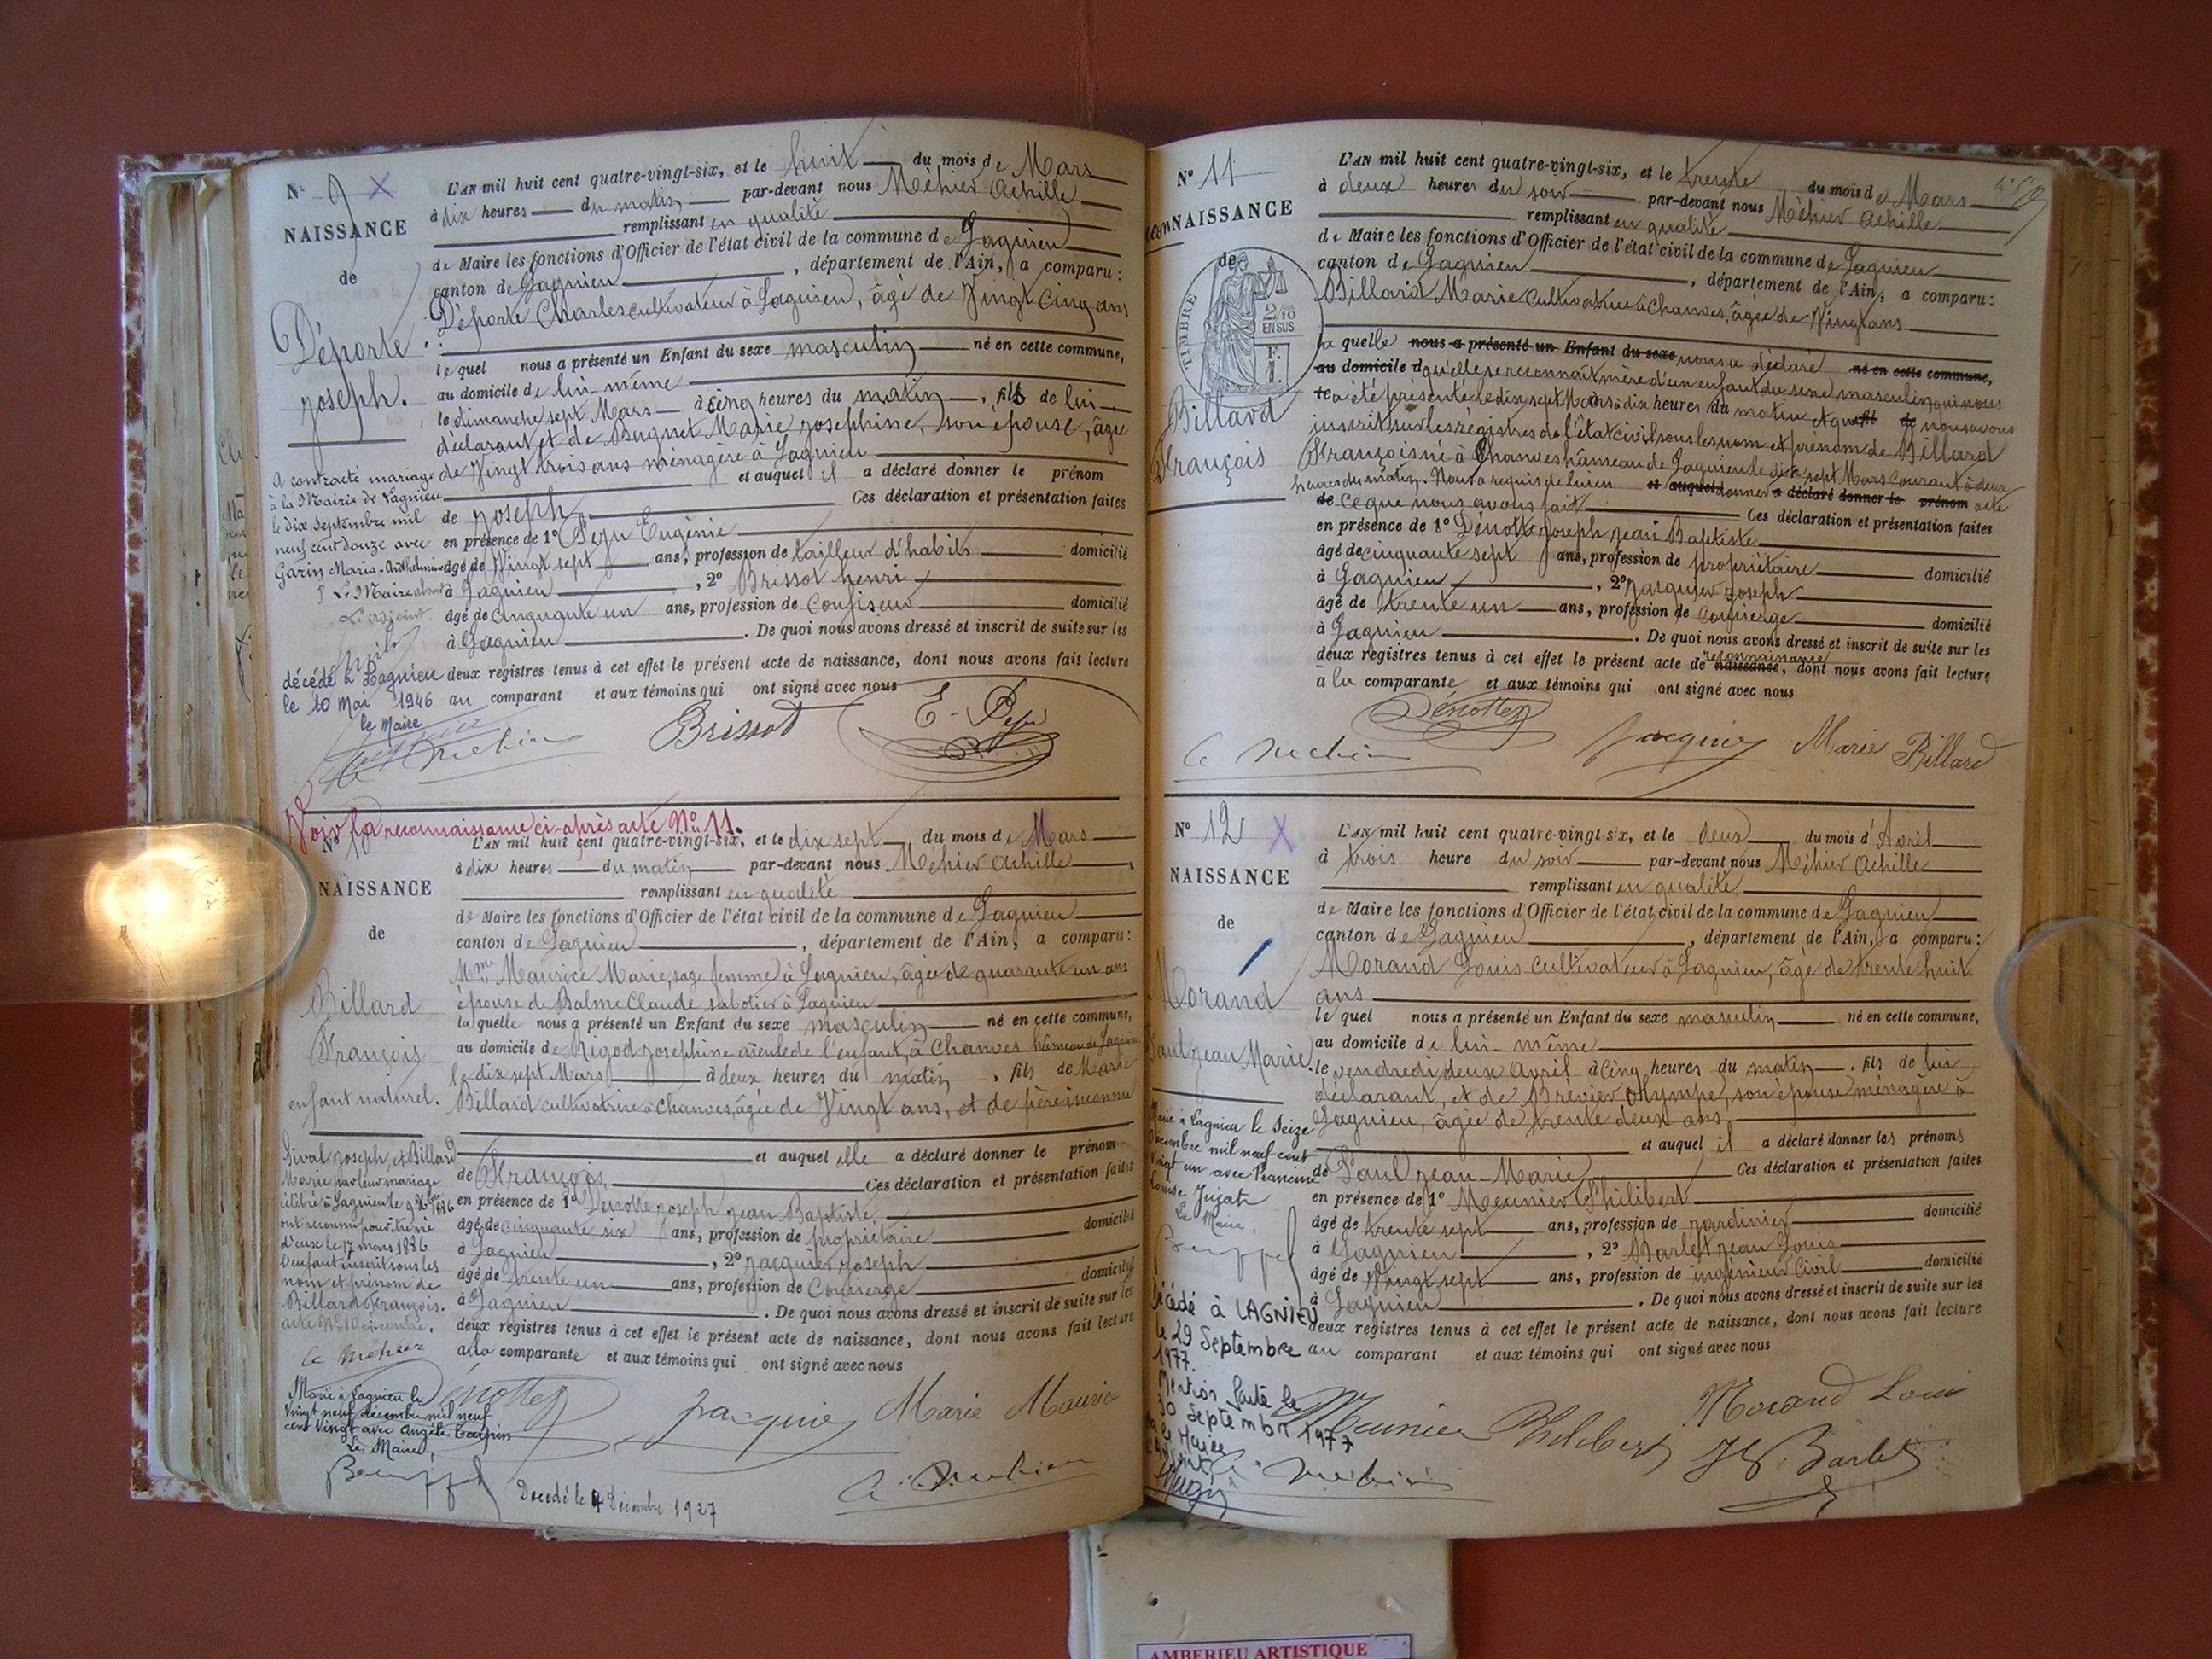 N° 9 X
NAISSANCE
de
Déporte
joseph.
L'AN mil huit cent quatre-vingt-six, et le huit du mois de Mars
à dix heures du matin par-devant nous Méhier Achille
remplissant en qualité
de Maire les fonctions d'Officier de l'état civil de la commune de Lagnieu
canton de Lagnieu, département de l'Ain, a comparu:
Déporte Charles cultivateur à Lagnieu, âgé de Vingt cinq ans
lequel nous a présenté un Enfant du sexe masculin né en cette commune,
au domicile de lui-même
le dimanche sept Mars à cinq heures du matin, fils de lui
déclarant et de Buguet Marie josephine, son épouse, âgée
de Vingt trois ans ménagère à Lagnieu
et auquel il a déclaré donner le prénom
de joseph. Ces déclaration et présentation faites
en présence de 1° Peju Eugénie
âgé de Vingt sept ans, profession de tailleur d'habits domicilié
à Lagnieu, 2° Brissot henri
âgé de Cinquante un ans, profession de Confiseur domicilié
à Lagnieu. De quoi nous avons dressé et inscrit de suite sur les
deux registres tenus à cet effet le présent acte de naissance, dont nous avons fait lecture
au comparant et aux témoins qui ont signé avec nous
A contracté mariage
à la Mairie de Lagnieu
le dix Septembre mil
neuf cent douze avec
Garin Maria-Anthelmine
P Le Maire absent
L'adjoint
décédé à Lagnieu
le 10 Mai 1946
le Maire
Brissot
E. Peju
Voir la reconnaissance ci-après acte N° 11.
N° 10
NAISSANCE
de
Billard
François
enfant naturel.
L'AN mil huit cent quatre-vingt-six, et le dix sept du mois de Mars
à dix heures du matin par-devant nous Méhier Achille
remplissant en qualité
de Maire les fonctions d'Officier de l'état civil de la commune de Lagnieu
canton de Lagnieu, département de l'Ain, a comparu:
Mme Maurice Marie, sage femme à Lagnieu, âgée de quarante un ans
épouse de Balme Claude sabotier à Lagnieu
laquelle nous a présenté un Enfant du sexe masculin né en cette commune,
au domicile de Rigod josephine aïeule de l'enfant, à Chanves hâmeau de Lagnieu
le dix sept Mars à deux heures du matin, fils de Marie
Billard cultivatrice à Chanves, âgée de Vingt ans, et de père inconnu
et auquel elle a déclaré donner le prénom
de François. Ces déclaration et présentation faites
en présence de 1° Dénotte joseph jean Baptiste
âgé de cinquante six ans, profession de propriétaire domicilié
à Lagnieu, 2° jacquier joseph
âgé de trente un ans, profession de Concierge domicilié
à Lagnieu. De quoi nous avons dressé et inscrit de suite sur les
deux registres tenus à cet effet le présent acte de naissance, dont nous avons fait lecture
à la comparante et aux témoins qui ont signé avec nous
Rival joseph, et Billard
Marie par leur mariage
célébré à Lagnieu le 9 Xbre 1886
ont reconnu pour être né
d'eux le 17 mars 1886
l'enfant inscrit sous les
nom et prénom de
Billard François.
acte N° 10 ci-contre.
Le Méhier
Marié à Lagnieu le
vingt neuf décembre mil neuf
cent vingt avec Angèle
Le Maire,
Dénotte
jacquier
Marie Maurice
Decedé le 4 Décembre 1927
N° 11
reconNAISSANCE
de
TIMBRE
2/10
EN SUS
F.
1.
Billard
François
L'AN mil huit cent quatre-vingt-six, et le trente du mois de Mars
à deux heures du soir par-devant nous Méhier Achille
remplissant en qualité
de Maire les fonctions d'Officier de l'état civil de la commune de Lagnieu
canton de Lagnieu, département de l'Ain, a comparu:
Billard Marie cultivatrice à Chanves, âgée de Vingt ans
laquelle nous a présenté un Enfant du sexe nous a déclaré né en cette commune,
au domicile d qu'elle se reconnaît mère d'un enfant du sexe masculin qui nous
a été présenté le dix sept Mars à dix heures du matin et que nous avons
inscrit sur les régistres de l'état civil sous les nom et prénom de Billard
François né à Chanves hâmeau de Lagnieu le dix sept Mars courant à deux
heures du matin. Nous a requis de lui en et auquel donner a déclaré donner le prénom acte
de ce que nous avons fait Ces déclaration et présentation faites
en présence de 1° Dénotte joseph jean Baptiste
âgé de cinquante sept ans, profession de propriétaire domicilié
à Lagnieu, 2° jacquier joseph
âgé de trente un ans, profession de Concierge domicilié
à Lagnieu. De quoi nous avons dressé et inscrit de suite sur les
reconnaissance
deux registres tenus à cet effet le présent acte de naissance, dont nous avons fait lecture
à la comparante et aux témoins qui ont signé avec nous
Dénotte
jacquier
Marie Billard
N° 12 X
NAISSANCE
de
Morand
Paul jean Marie.
L'AN mil huit cent quatre-vingt-six, et le deux du mois d'Avril
à trois heure du soir par-devant nous Méhier Achille
remplissant en qualité
de Maire les fonctions d'Officier de l'état civil de la commune de Lagnieu
canton de Lagnieu, département de l'Ain, a comparu:
Morand Louis cultivateur à Lagnieu, âgé de trente huit
ans
lequel nous a présenté un Enfant du sexe masculin né en cette commune,
au domicile de lui-même
le vendredi deux Avril à Cinq heures du matin, fils de lui
déclarant, et de Brévier olympe, son épouse ménagère à
Lagnieu, âgée de trente deux ans
et auquel il a déclaré donner les prénoms
de Paul jean Marie Ces déclaration et présentation faites
en présence de 1° Meunier Philibert
âgé de trente sept ans, profession de jardinier domicilié
à Lagnieu, 2° Barlet jean Louis
âgé de Vingt sept ans, profession de ingénieur Civil domicilié
à Lagnieu. De quoi nous avons dressé et inscrit de suite sur les
deux registres tenus à cet effet le présent acte de naissance, dont nous avons fait lecture
au comparant et aux témoins qui ont signé avec nous
Marié à Lagnieu le Seize
Décembre mil neuf cent
vingt un avec Francine
Louise Juzat
Le Maire,
Décédé à LAGNIEU
le 29 Septembre
1977.
Mention faite le
30 Septembre 1977
Meunier Philibert
Morand Loui
JL Barlet
AMBERIEU ARTISTIQUE